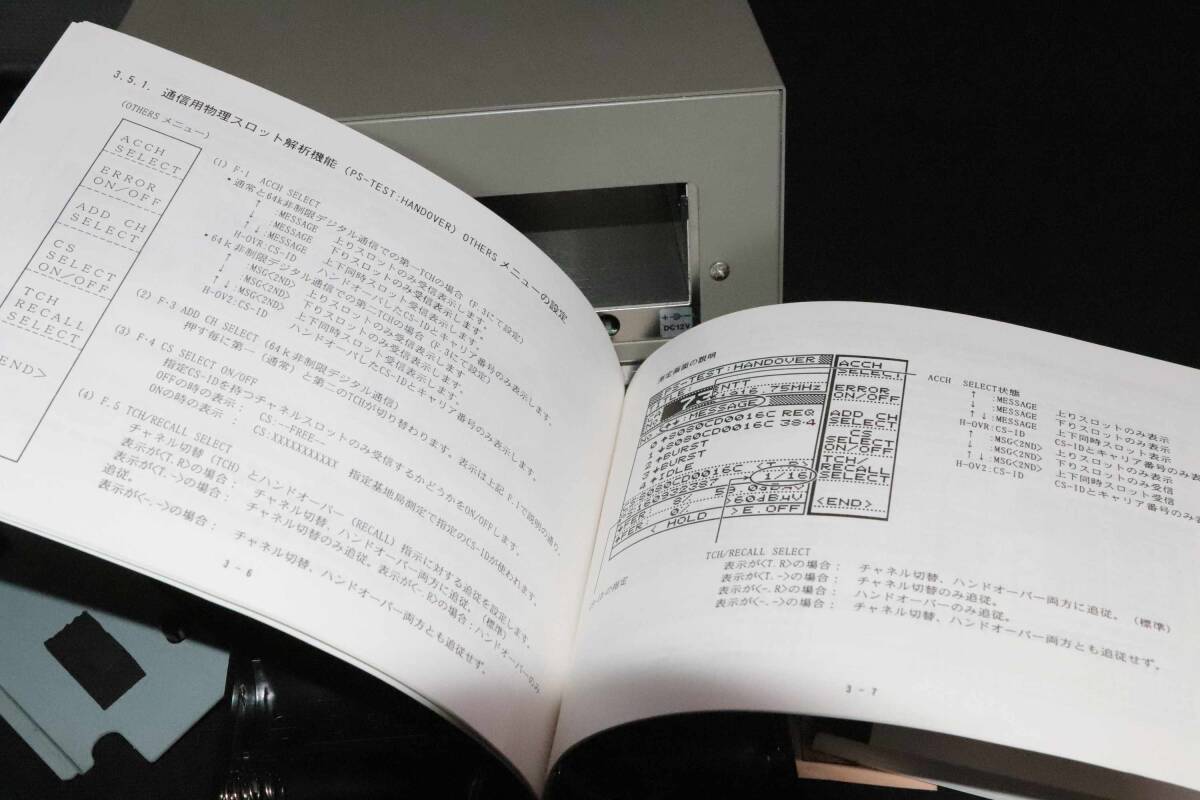 3.5.1. 通信用物理スロット解析機能 (PS-TEST:HANDOVER) OTHERS メニューの設定
(OTHERS メニュー)
ACCH
SELECT
ERROR
ON/OFF
ADD CH
SELECT
CS
SELECT
ON/OFF
TCH
RECALL
SELECT
<END>
(1) F・1 ACCH SELECT
•通常と64k非制限デジタル通信での第一TCHの場合 (F・3にて設定)
↑ :MESSAGE 上りスロットのみ受信表示します。
↓ :MESSAGE 下りスロットのみ受信表示します。
↑↓:MESSAGE 上下同時スロット受信表示します。
H-OVR:CS-ID ハンドオーバしたCS-IDとキャリア番号のみ表示します。
•64k非制限デジタル通信での第二TCHの場合 (F・3にて設定)
↑ :MSG<2ND> 上りスロットのみ受信表示します。
↓ :MSG<2ND> 下りスロットのみ受信表示します。
↑↓:MSG<2ND> 上下同時スロット受信表示します。
H-OV2:CS-ID ハンドオーバしたCS-IDとキャリア番号のみ表示します。
(2) F・3 ADD CH SELECT (64k非制限デジタル通信)
押す毎に第一(通常)と第二のTCHが切り替わります。表示は上記 F・1で説明の通り。
(3) F・4 CS SELECT ON/OFF
指定CS-IDを持つチャネルスロットのみ受信するかどうかをON/OFFします。
OFFの時の表示: CS:--FREE--
ONの時の表示 : CS:XXXXXXXXXXX 指定基地局制定で指定のCS-IDが使われます。
(4) F・5 TCH/RECALL SELECT
チャネル切替 (TCH) とハンドオーバー (RECALL) 指示に対する追従を設定します。
表示が<T.R>の場合: チャネル切替、ハンドオーバー両方に追従。(標準)
表示が<T.->の場合: チャネル切替のみ追従。表示が<-.R>の場合:ハンドオーバーのみ
追従。
表示が<-.->の場合: チャネル切替、ハンドオーバー両方とも追従せず。
3 - 6
測定画面の説明
PS-TEST:HANDOVER
<↑↓:MESSAGE>
REQ
↓BURST
↓BURST
↓IDLE
1/16
>60dBμV
<HOLD >E.OFF
ACCH
SELECT
ERROR
ON/OFF
ADD CH
SELECT
CS
SELECT
ON/OFF
TCH/
RECALL
SELECT
<END>
ACCH SELECT状態
↑ :MESSAGE 上りスロットのみ表示
↓ :MESSAGE 下りスロットのみ表示
↑↓:MESSAGE 上下同時スロット表示
H-OVR:CS-ID CS-IDとキャリア番号のみ表
↑ :MSG<2ND> 上りスロットのみ表示
↓ :MSG<2ND> 下りスロットのみ受信
↑↓:MSG<2ND> 上下同時スロット受信
H-OV2:CS-ID CS-IDとキャリア番号のみ
TCH/RECALL SELECT
表示が<T.R>の場合: チャネル切替、ハンドオーバー両方に追従。(標準)
表示が<T.->の場合: チャネル切替のみ追従。
表示が<-.R>の場合: ハンドオーバーのみ追従。
表示が<-.->の場合: チャネル切替、ハンドオーバー両方とも追従せず。
3 - 7
DC12V